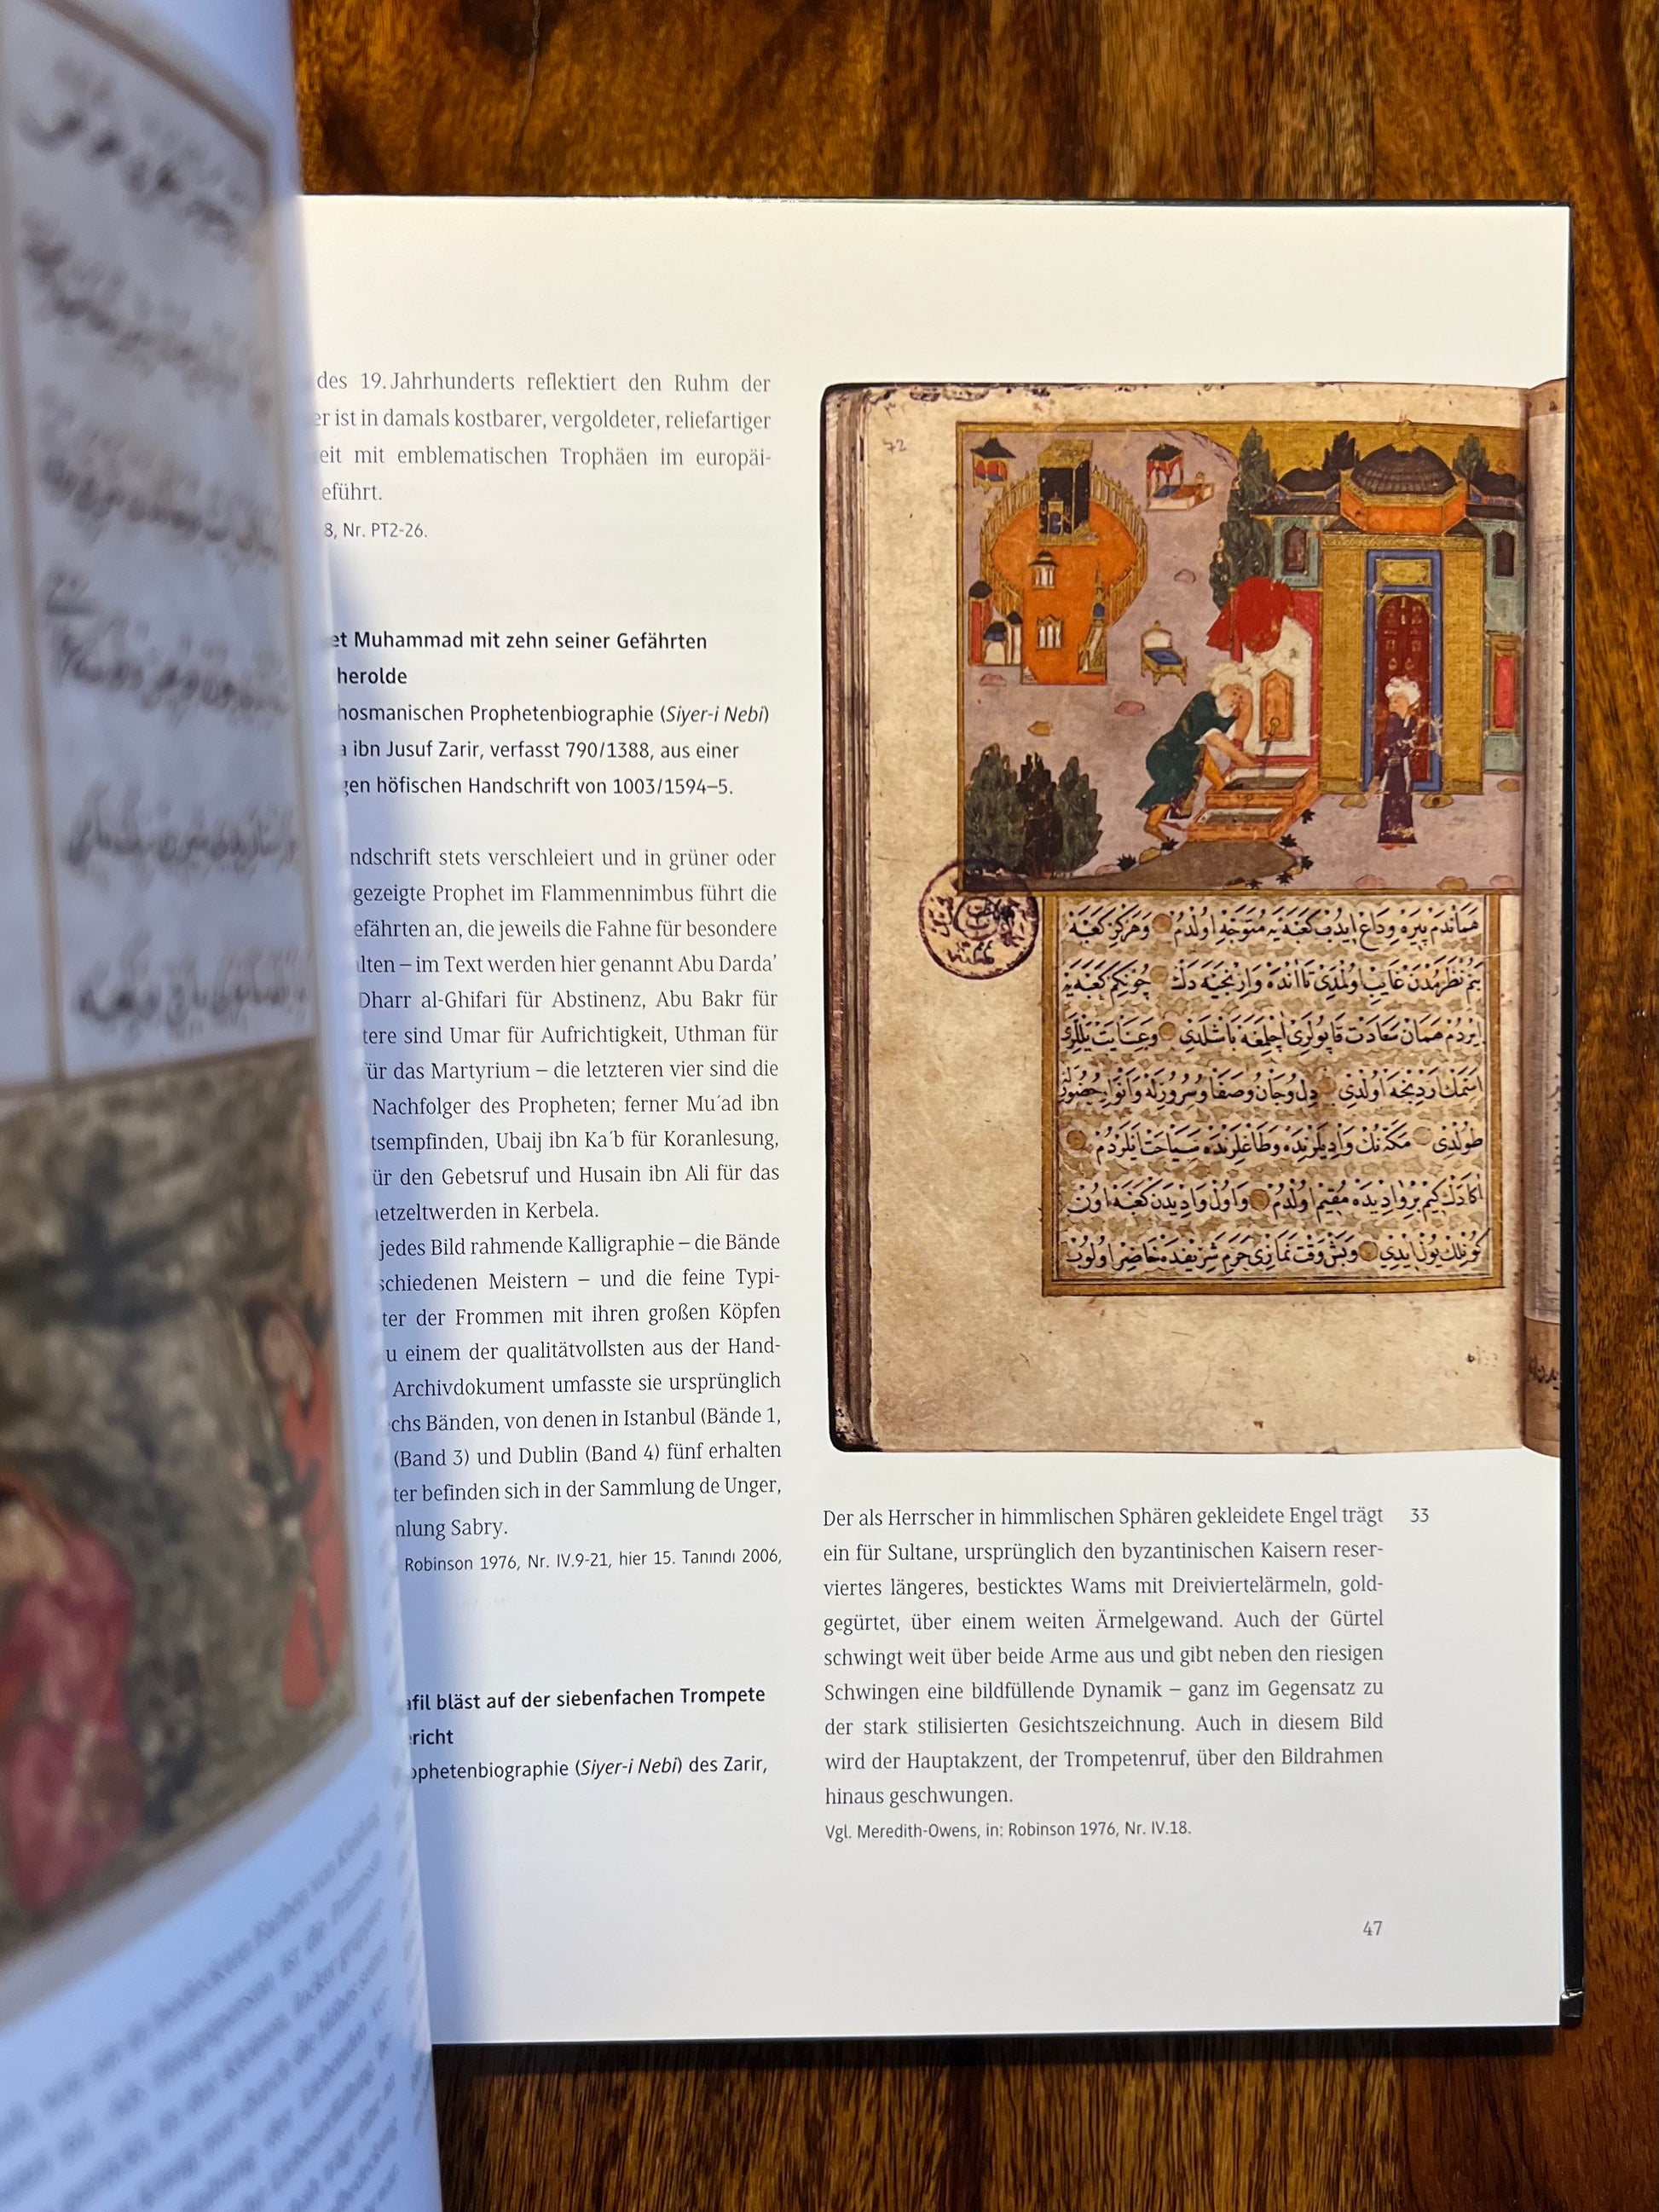 des 19. Jahrhunderts reflektiert den Ruhm der
er ist in damals kostbarer, vergoldeter, reliefartiger
eit mit emblematischen Trophäen im europäi-
eführt.
8, Nr. PT2-26.
et Muhammad mit zehn seiner Gefährten
herolde
hosmanischen Prophetenbiographie (Siyer-i Nebi)
a ibn Jusuf Zarir, verfasst 790/1388, aus einer
gen höfischen Handschrift von 1003/1594–5.
ndschrift stets verschleiert und in grüner oder
gezeigte Prophet im Flammennimbus führt die
efährten an, die jeweils die Fahne für besondere
lten – im Text werden hier genannt Abu Darda’
Dharr al-Ghifari für Abstinenz, Abu Bakr für
tere sind Umar für Aufrichtigkeit, Uthman für
ür das Martyrium – die letzteren vier sind die
Nachfolger des Propheten; ferner Mu´ad ibn
tsempfinden, Ubaij ibn Ka´b für Koranlesung,
ür den Gebetsruf und Husain ibn Ali für das
etzeltwerden in Kerbela.
jedes Bild rahmende Kalligraphie – die Bände
schiedenen Meistern – und die feine Typi-
ter der Frommen mit ihren großen Köpfen
u einem der qualitätvollsten aus der Hand-
Archivdokument umfasste sie ursprünglich
chs Bänden, von denen in Istanbul (Bände 1,
(Band 3) und Dublin (Band 4) fünf erhalten
ter befinden sich in der Sammlung de Unger,
mlung Sabry.
Robinson 1976, Nr. IV.9-21, hier 15. Tanındı 2006,
afil bläst auf der siebenfachen Trompete
richt
ophetenbiographie (Siyer-i Nebi) des Zarir,
72
هماندم پیره وداع ایدب کعبه یه متوجه اولدم وهرکز کعبه
بنم نظرمدن غایب اولمدی تا آنده وارنجیه دك چونکم کعبه یه
ایردم همان سعادت قاپولری اچلمغه باشلدی وعنایت یللری
اسمك اردنجه اولدی دل وجان وصفا وسرورله وانوار حضورله
طولدی مکه نك وادیلرنده وطاغلرنده سیاحت ایلردم
اکا دك کیم بر وادیده مقیم اولدم واول وادیدن کعبه اون
کونلك یول ایدی وبش وقت نمازی حرم شریفده حاضر اولوب
Der als Herrscher in himmlischen Sphären gekleidete Engel trägt 33
ein für Sultane, ursprünglich den byzantinischen Kaisern reser-
viertes längeres, besticktes Wams mit Dreiviertelärmeln, gold-
gegürtet, über einem weiten Ärmelgewand. Auch der Gürtel
schwingt weit über beide Arme aus und gibt neben den riesigen
Schwingen eine bildfüllende Dynamik – ganz im Gegensatz zu
der stark stilisierten Gesichtszeichnung. Auch in diesem Bild
wird der Hauptakzent, der Trompetenruf, über den Bildrahmen
hinaus geschwungen.
Vgl. Meredith-Owens, in: Robinson 1976, Nr. IV.18.
47